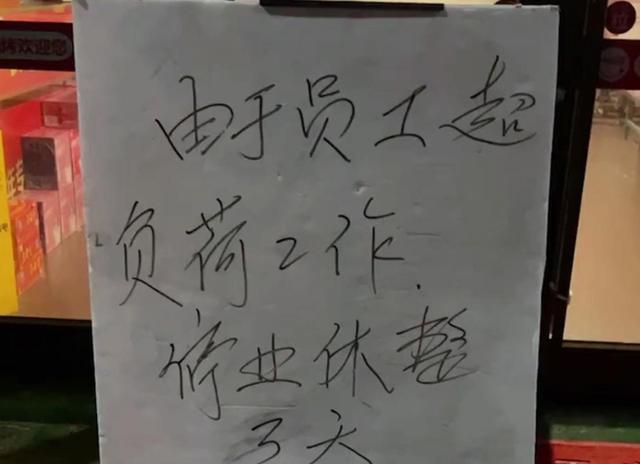 由于员工超
负荷工作.
停业休整
3天
欢迎您